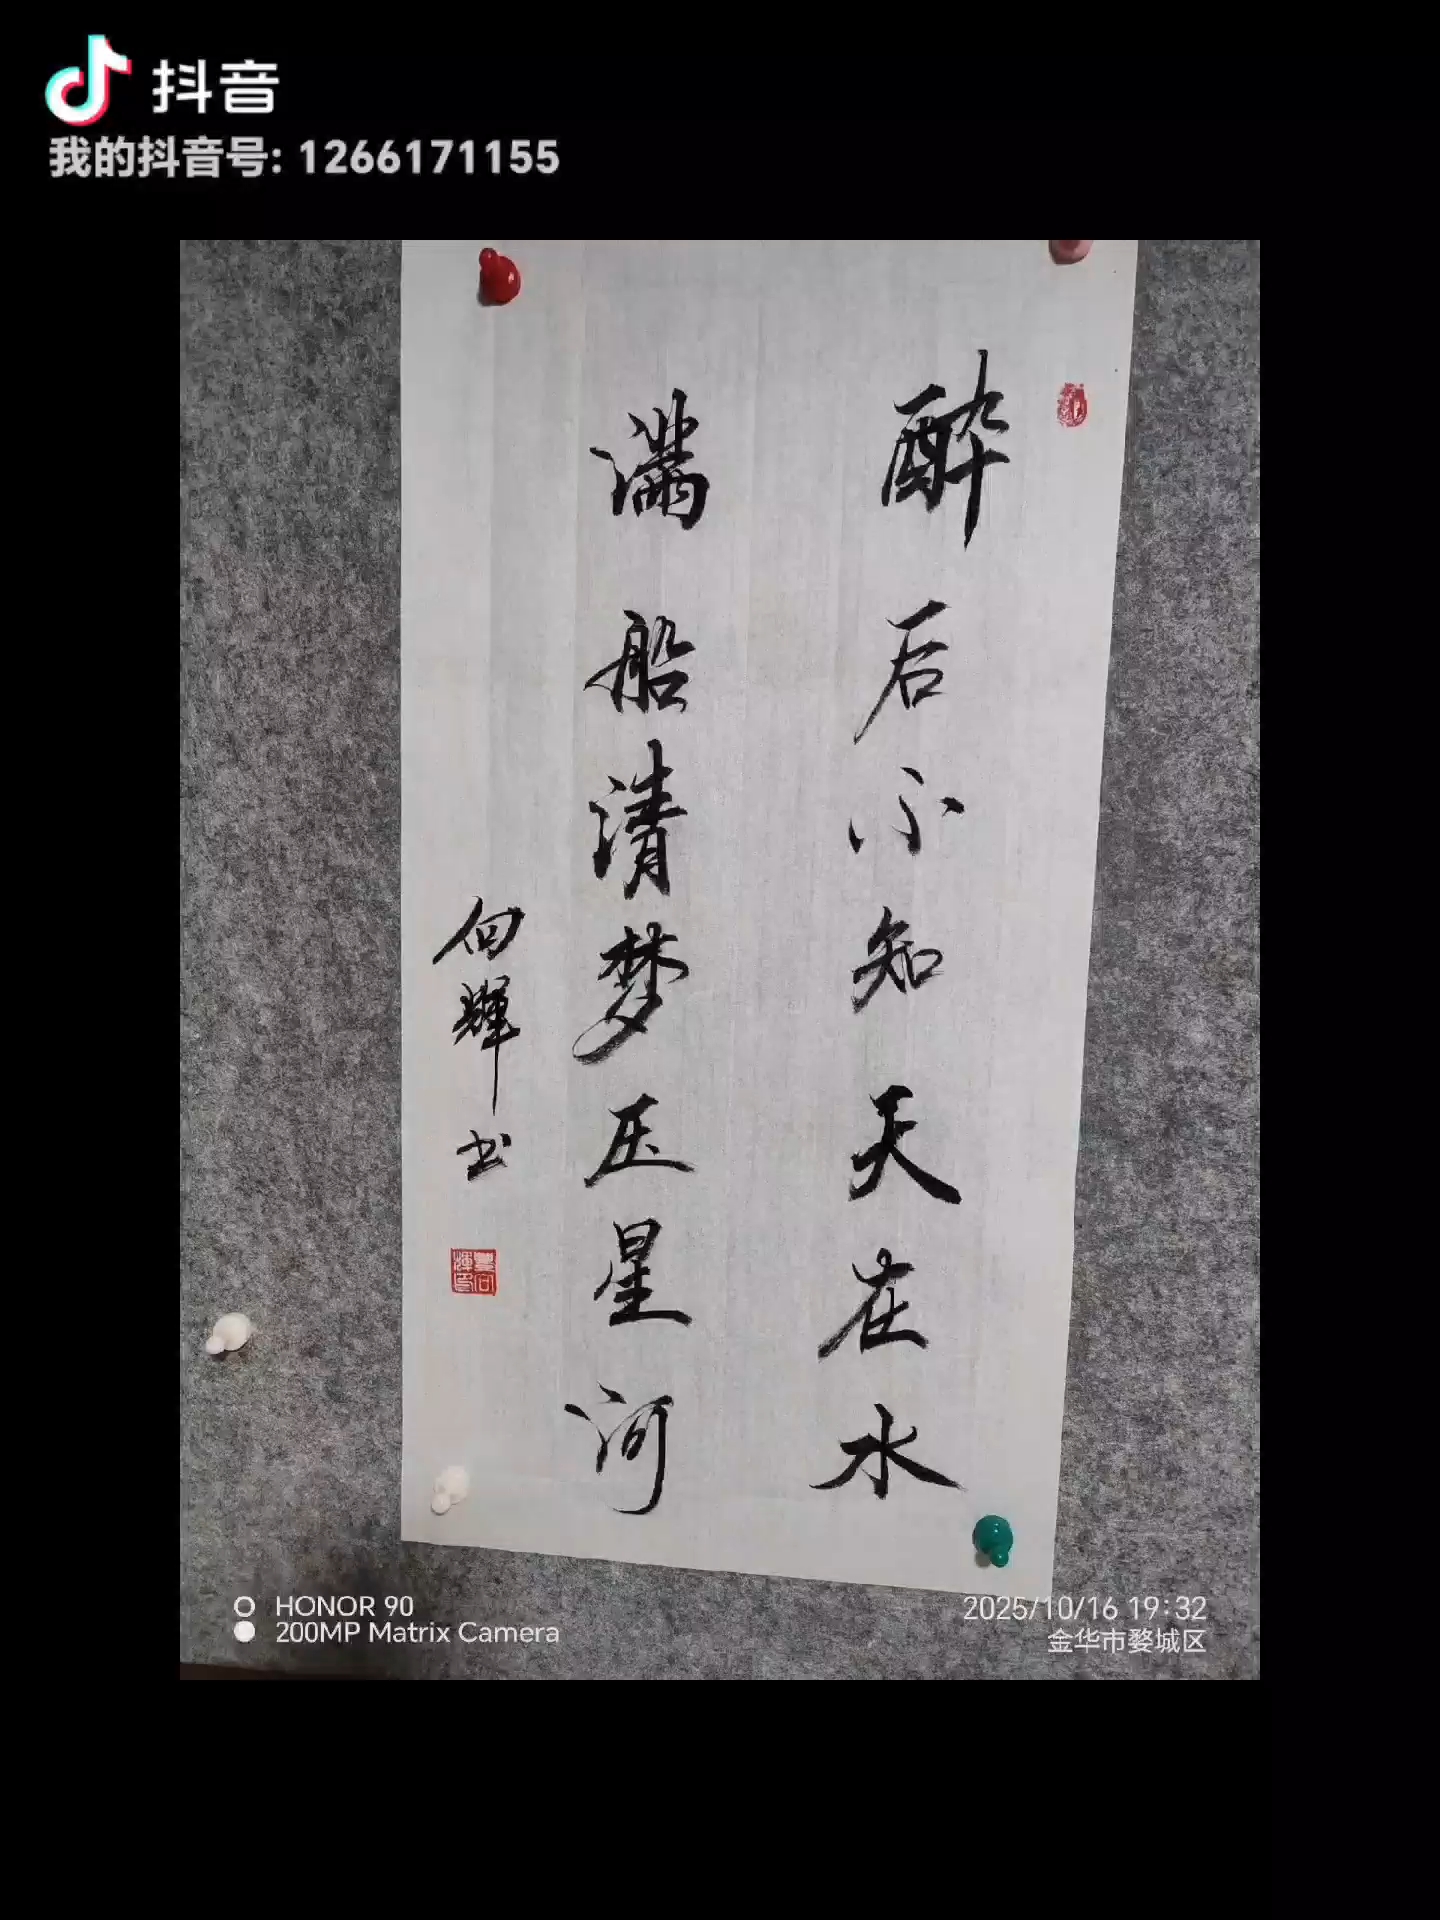 抖音
我的抖音号: 1266171155
醉后不知天在水
满船清梦压星河
向辉书
HONOR 90
200MP Matrix Camera
2025/10/16 19:32
金华市婺城区